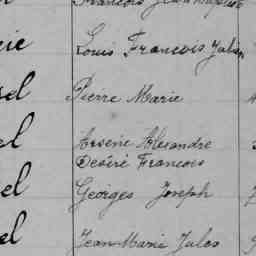 François Jean Baptiste
rie Louis François Julien
sel Pierre Marie
el Arsène Alexandre
Désiré François
sel Georges Joseph
el Jean Marie Jules